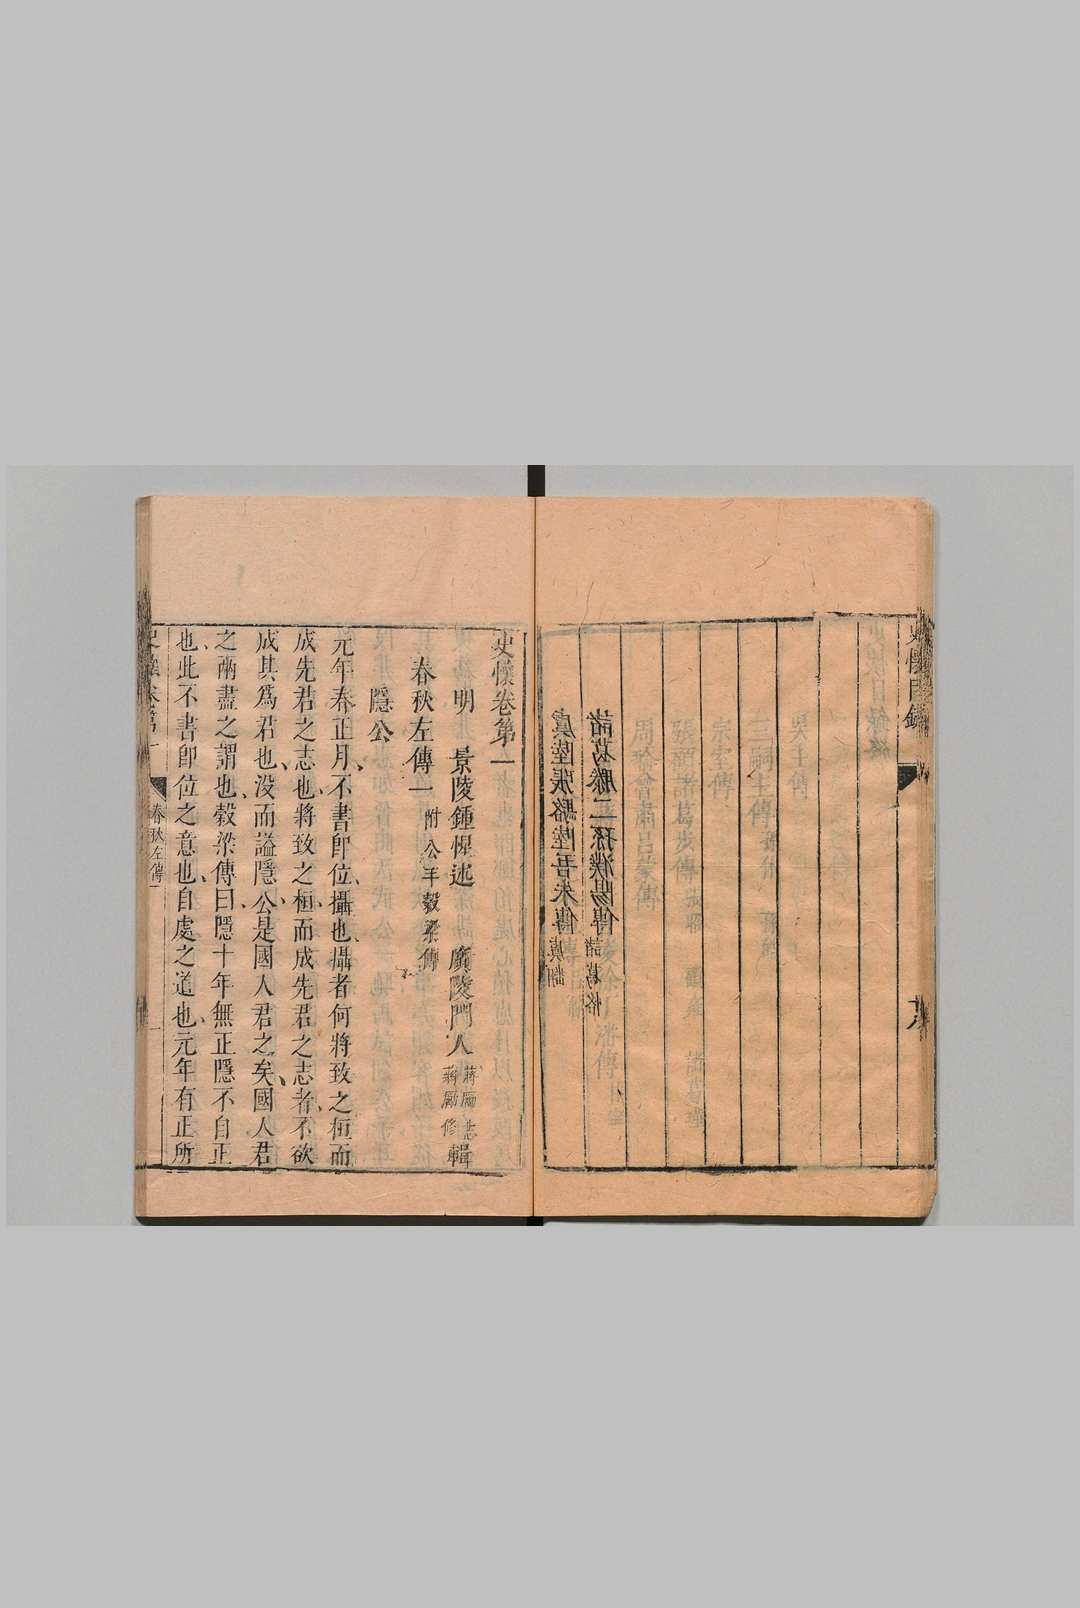 史懷目錄
十八
諸葛滕二孫濮陽傳 諸葛恪
虞陸張駱陸吾朱傳 虞翻
史懷卷第一
明 景陵鍾惺述 廣陵門人 蔣勵志 蔣勵修 輯
春秋左傳一 附公羊穀梁傳
隱公
元年春正月不書即位攝也攝者何將致之桓而
成先君之志也將致之桓而成先君之志者不欲
成其為君也没而謚隱公是國人君之矣國人君
之兩盡之謂也穀梁傳曰隱十年無正隱不自正
也此不書即位之意也自處之道也元年有正所
史懷卷第一
春秋左傳一
一